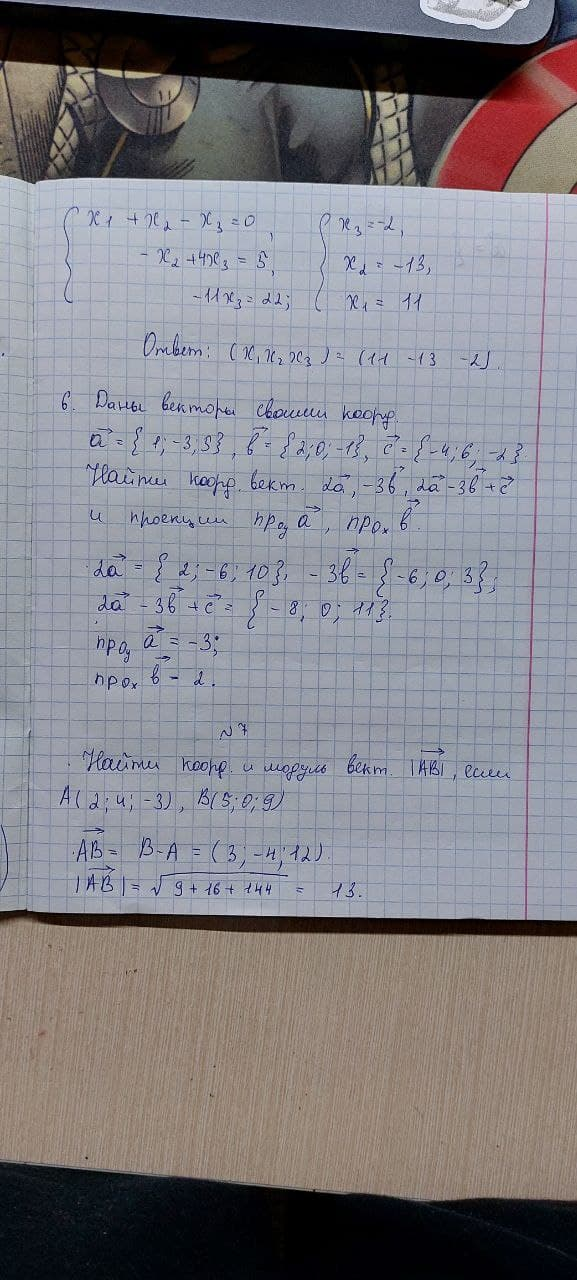 x1 + x2 - x3 = 0, x3 = -2,
- x2 + 4x3 = 5, x2 = -13,
-11x3 = 22; x1 = 11
Ответ: (x1 x2 x3) = (11 -13 -2).
6. Даны векторы своими коорд.
a = {1; -3, 5}, b = {2; 0; -1}, c = {-4; 6; -2}
Найти коорд. вект. 2a, -3b, 2a - 3b + c
и проекции прoy a, прox b.
2a = {2; -6; 10}, -3b = {-6; 0; 3};
2a - 3b + c = {-8; 0; 11}.
прoy a = -3;
прox b - 2.
№7
Найти коорд. и модуль вект. |AB|, если
A(2; 4; -3), B(5; 0; 9)
AB = B-A = (3; -4; 12).
|AB| = √9 + 16 + 144 = 13.